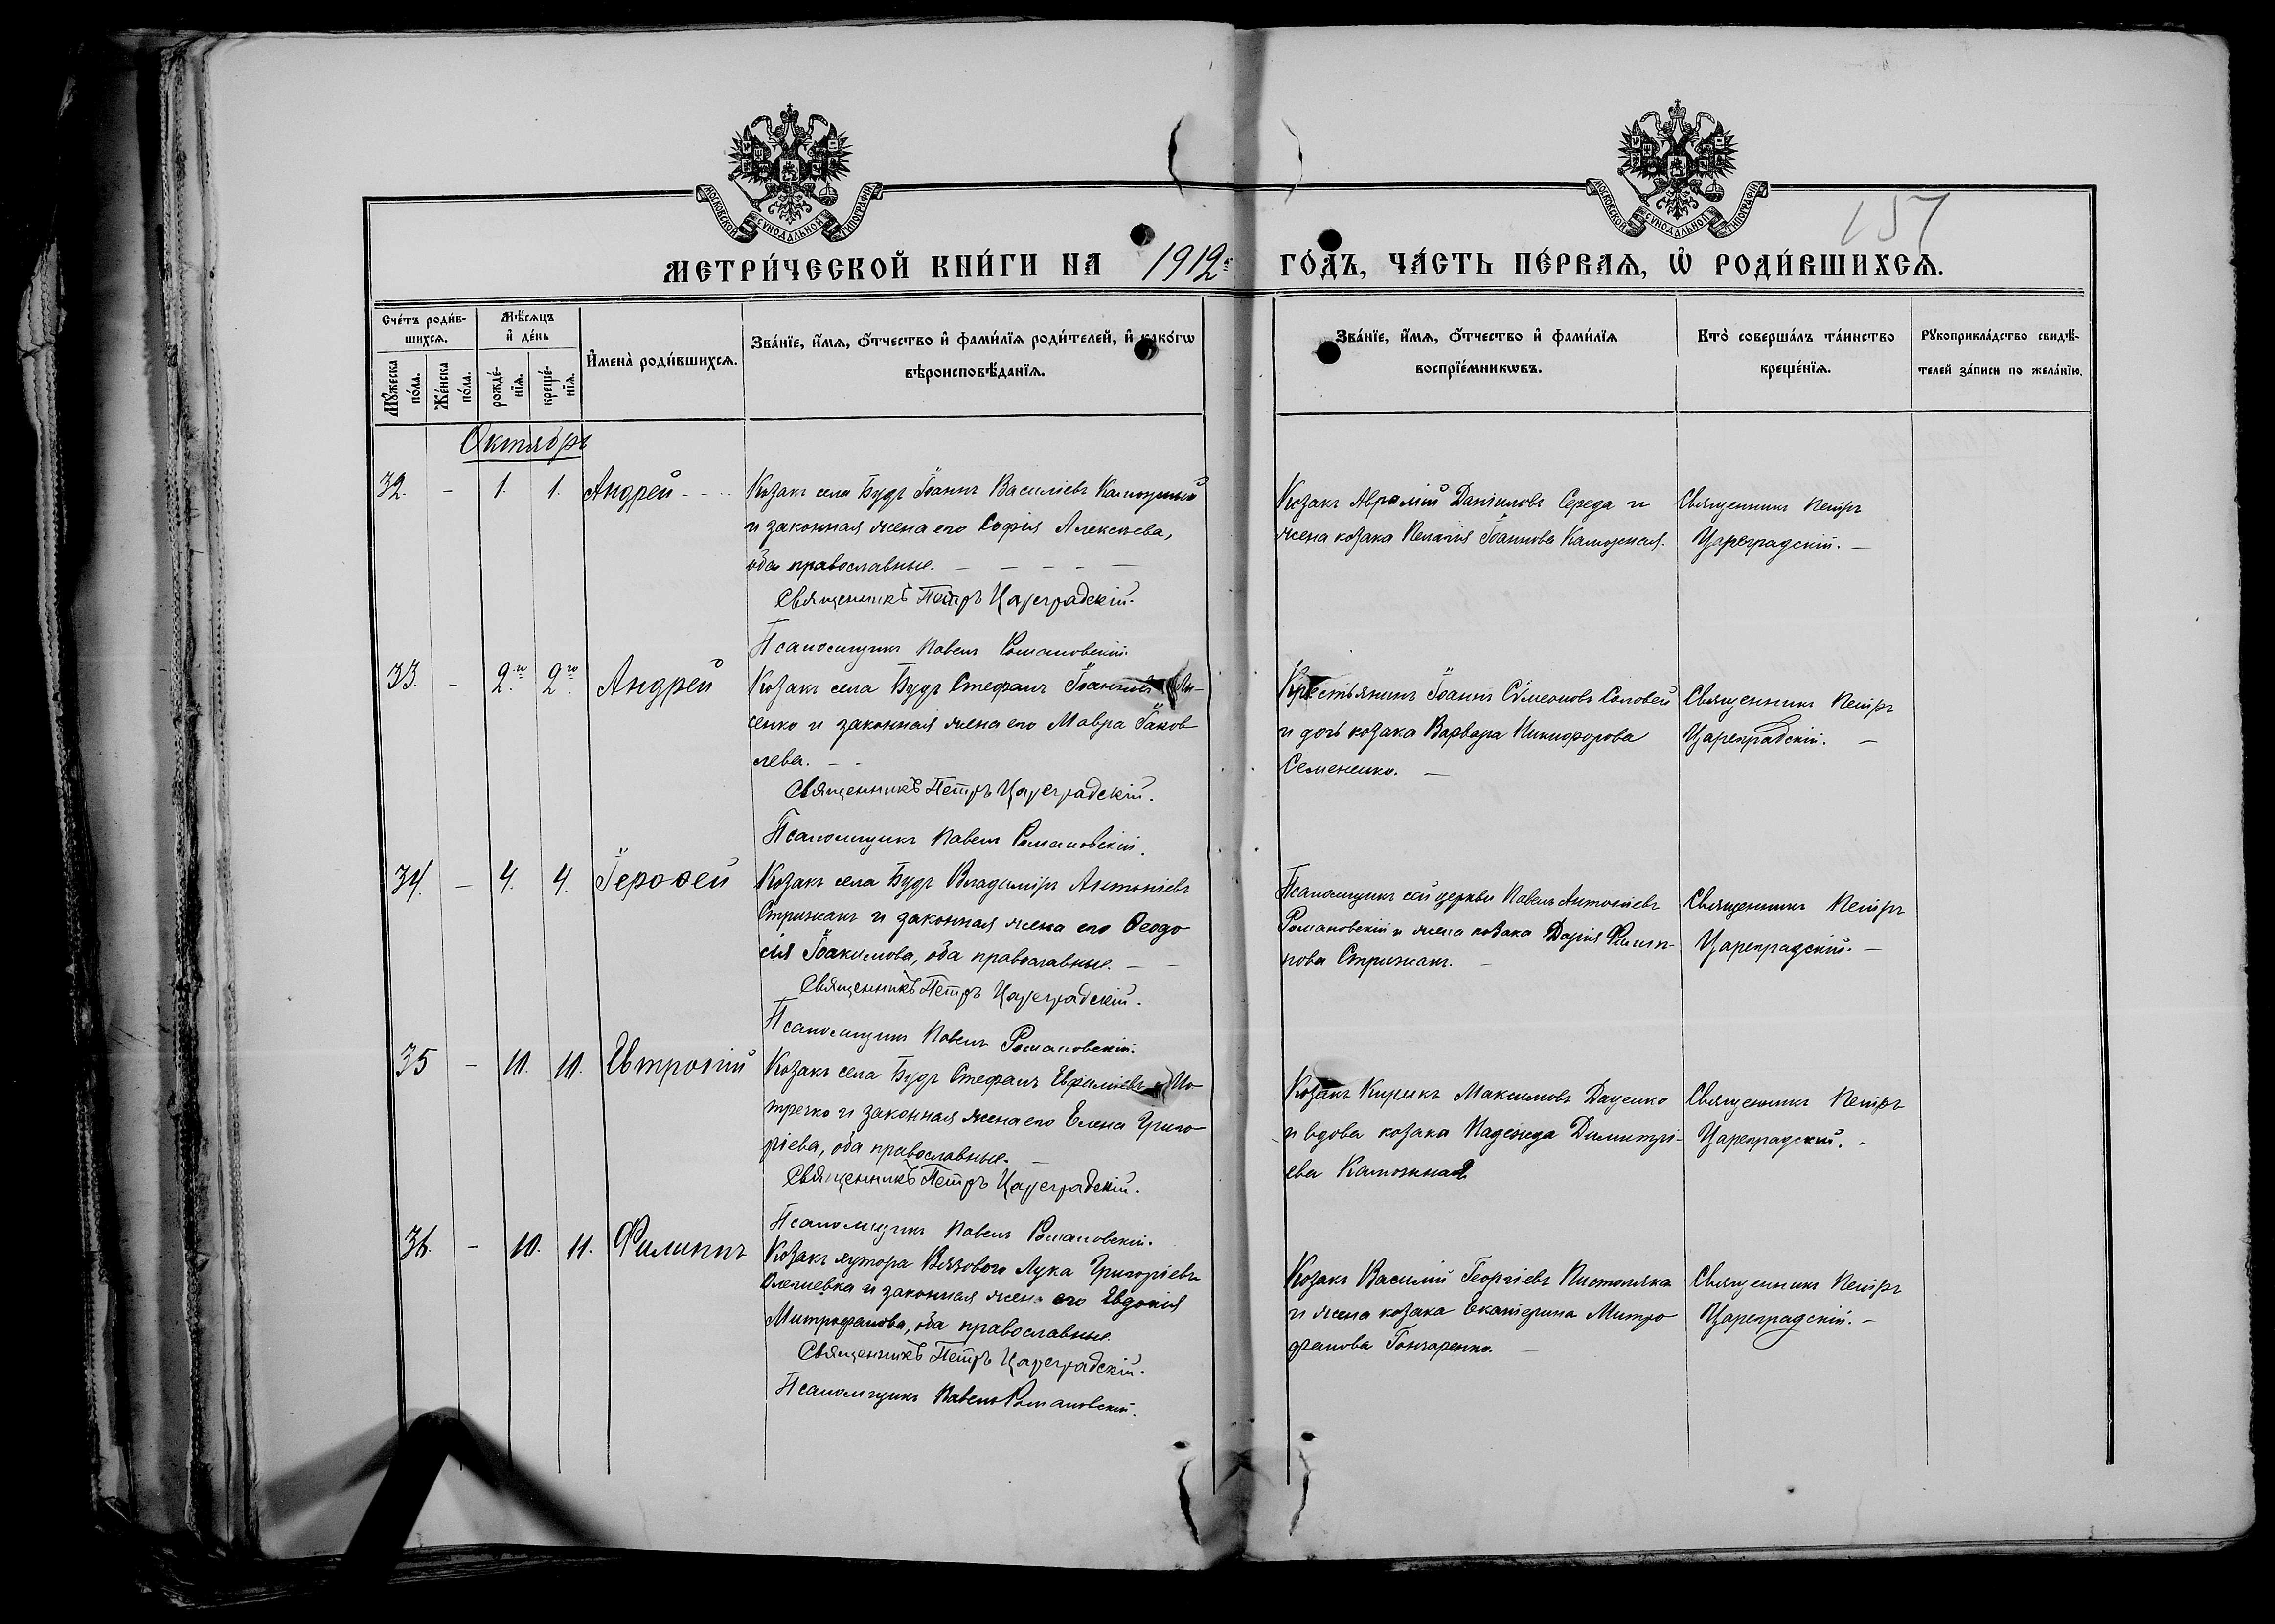 МОСКОВСКОЙ СѴНОДАЛЬНОЙ ТИПОГРАФІИ
МОСКОВСКОЙ СѴНОДАЛЬНОЙ ТИПОГРАФІИ
157
МЕТРИ́ЧЕСКОЙ КНИ́ГИ НА 1912й ГО́ДЪ, ЧА́СТЬ ПЕ́РВАѦ, Ѡ҆ РОДИ́ВШИХСѦ.
Сче́тъ роди́в-
шихсѧ.
Мꙋ́жеска
по́ла.
Же́нска
по́ла.
Мѣ́сѧцъ
и҆ де́нь
рожде́-
нїѧ.
креще́-
нїѧ.
И҆мена̀ роди́вшихсѧ.
Зва́нїе, и҆́мѧ, ѻ҆́тчество и҆ фами́лїѧ роди́телей, и҆ како́гѡ
вѣроисповѣ́данїѧ.
Зва́нїе, и҆́мѧ, ѻ҆́тчество и҆ фами́лїѧ
воспрїе́мникѡвъ.
Кто̀ соверша́лъ та́инство
креще́нїѧ.
Рꙋкоприкла́дство свидѣ́-
телей за́писи по жела́нїю.
Октябрь
32. - 1. 1. Андрей - - - -
Козакъ села Будъ Іоаннъ Василіевъ
и законная жена его Софія Алексѣева,
оба православные. - - - - -
Священникъ Петръ Цареградскій.
Псаломщикъ Павелъ Романовскій.
Козакъ Авраамій Даніиловъ Середа и
жена козака Пелагія Іоаннова Каможная.
Священникъ Петръ
Цареградскій. -
33. - 2го 2го Андрей
Козакъ села Будъ Стефанъ Іоанновъ
сенко и законная жена его Мавра Іаков
лева. - -
Священникъ Петръ Цареградскій.
Псаломщикъ Павелъ Романовскій.
Крестьянинъ Іоаннъ Сѵмеоновъ Соловей
и дочь козака Варвара Никифорова
Семененко. -
Священникъ Петръ
Цареградскій. -
34. - 4. 4. Іероѳей
Козакъ села Будъ Владиміръ Антоніевъ
Стрижакъ и законная жена его Ѳеодо
сія Іоакимова, оба православные. - -
Священникъ Петръ Цареградскій.
Псаломщикъ Павелъ Романовскій.
Псаломщикъ сей церкви Павелъ Антоніевъ
Романовскій и жена козака Дарія Филип-
пова Стрижакъ. -
Священникъ Петръ
Цареградскій. -
35 - 10. 10. Евтропій
Козакъ села Будъ Стефанъ Евфиміевъ
и законная жена его Елена Григо
ріева, оба православные. -
Священникъ Петръ Цареградскій.
Псаломщикъ Павелъ Романовскій.
Козакъ Кирикъ Максимовъ Даценко
и вдова козака Надежда Димитрі-
ева Каможная
Священникъ Петръ
Цареградскій. -
36. - 10. 11. Филиппъ
Козакъ хутора Вязового Лука Григоріевъ
и законная жена его Евдокія
Митрофанова, оба православные.
Священникъ Петръ Цареградскій.
Псаломщикъ Павелъ Романовскій.
Козакъ Василій Георгіевъ
и жена козака Екатерина Митро
фанова Гончаренко. -
Священникъ Петръ
Цареградскій. -